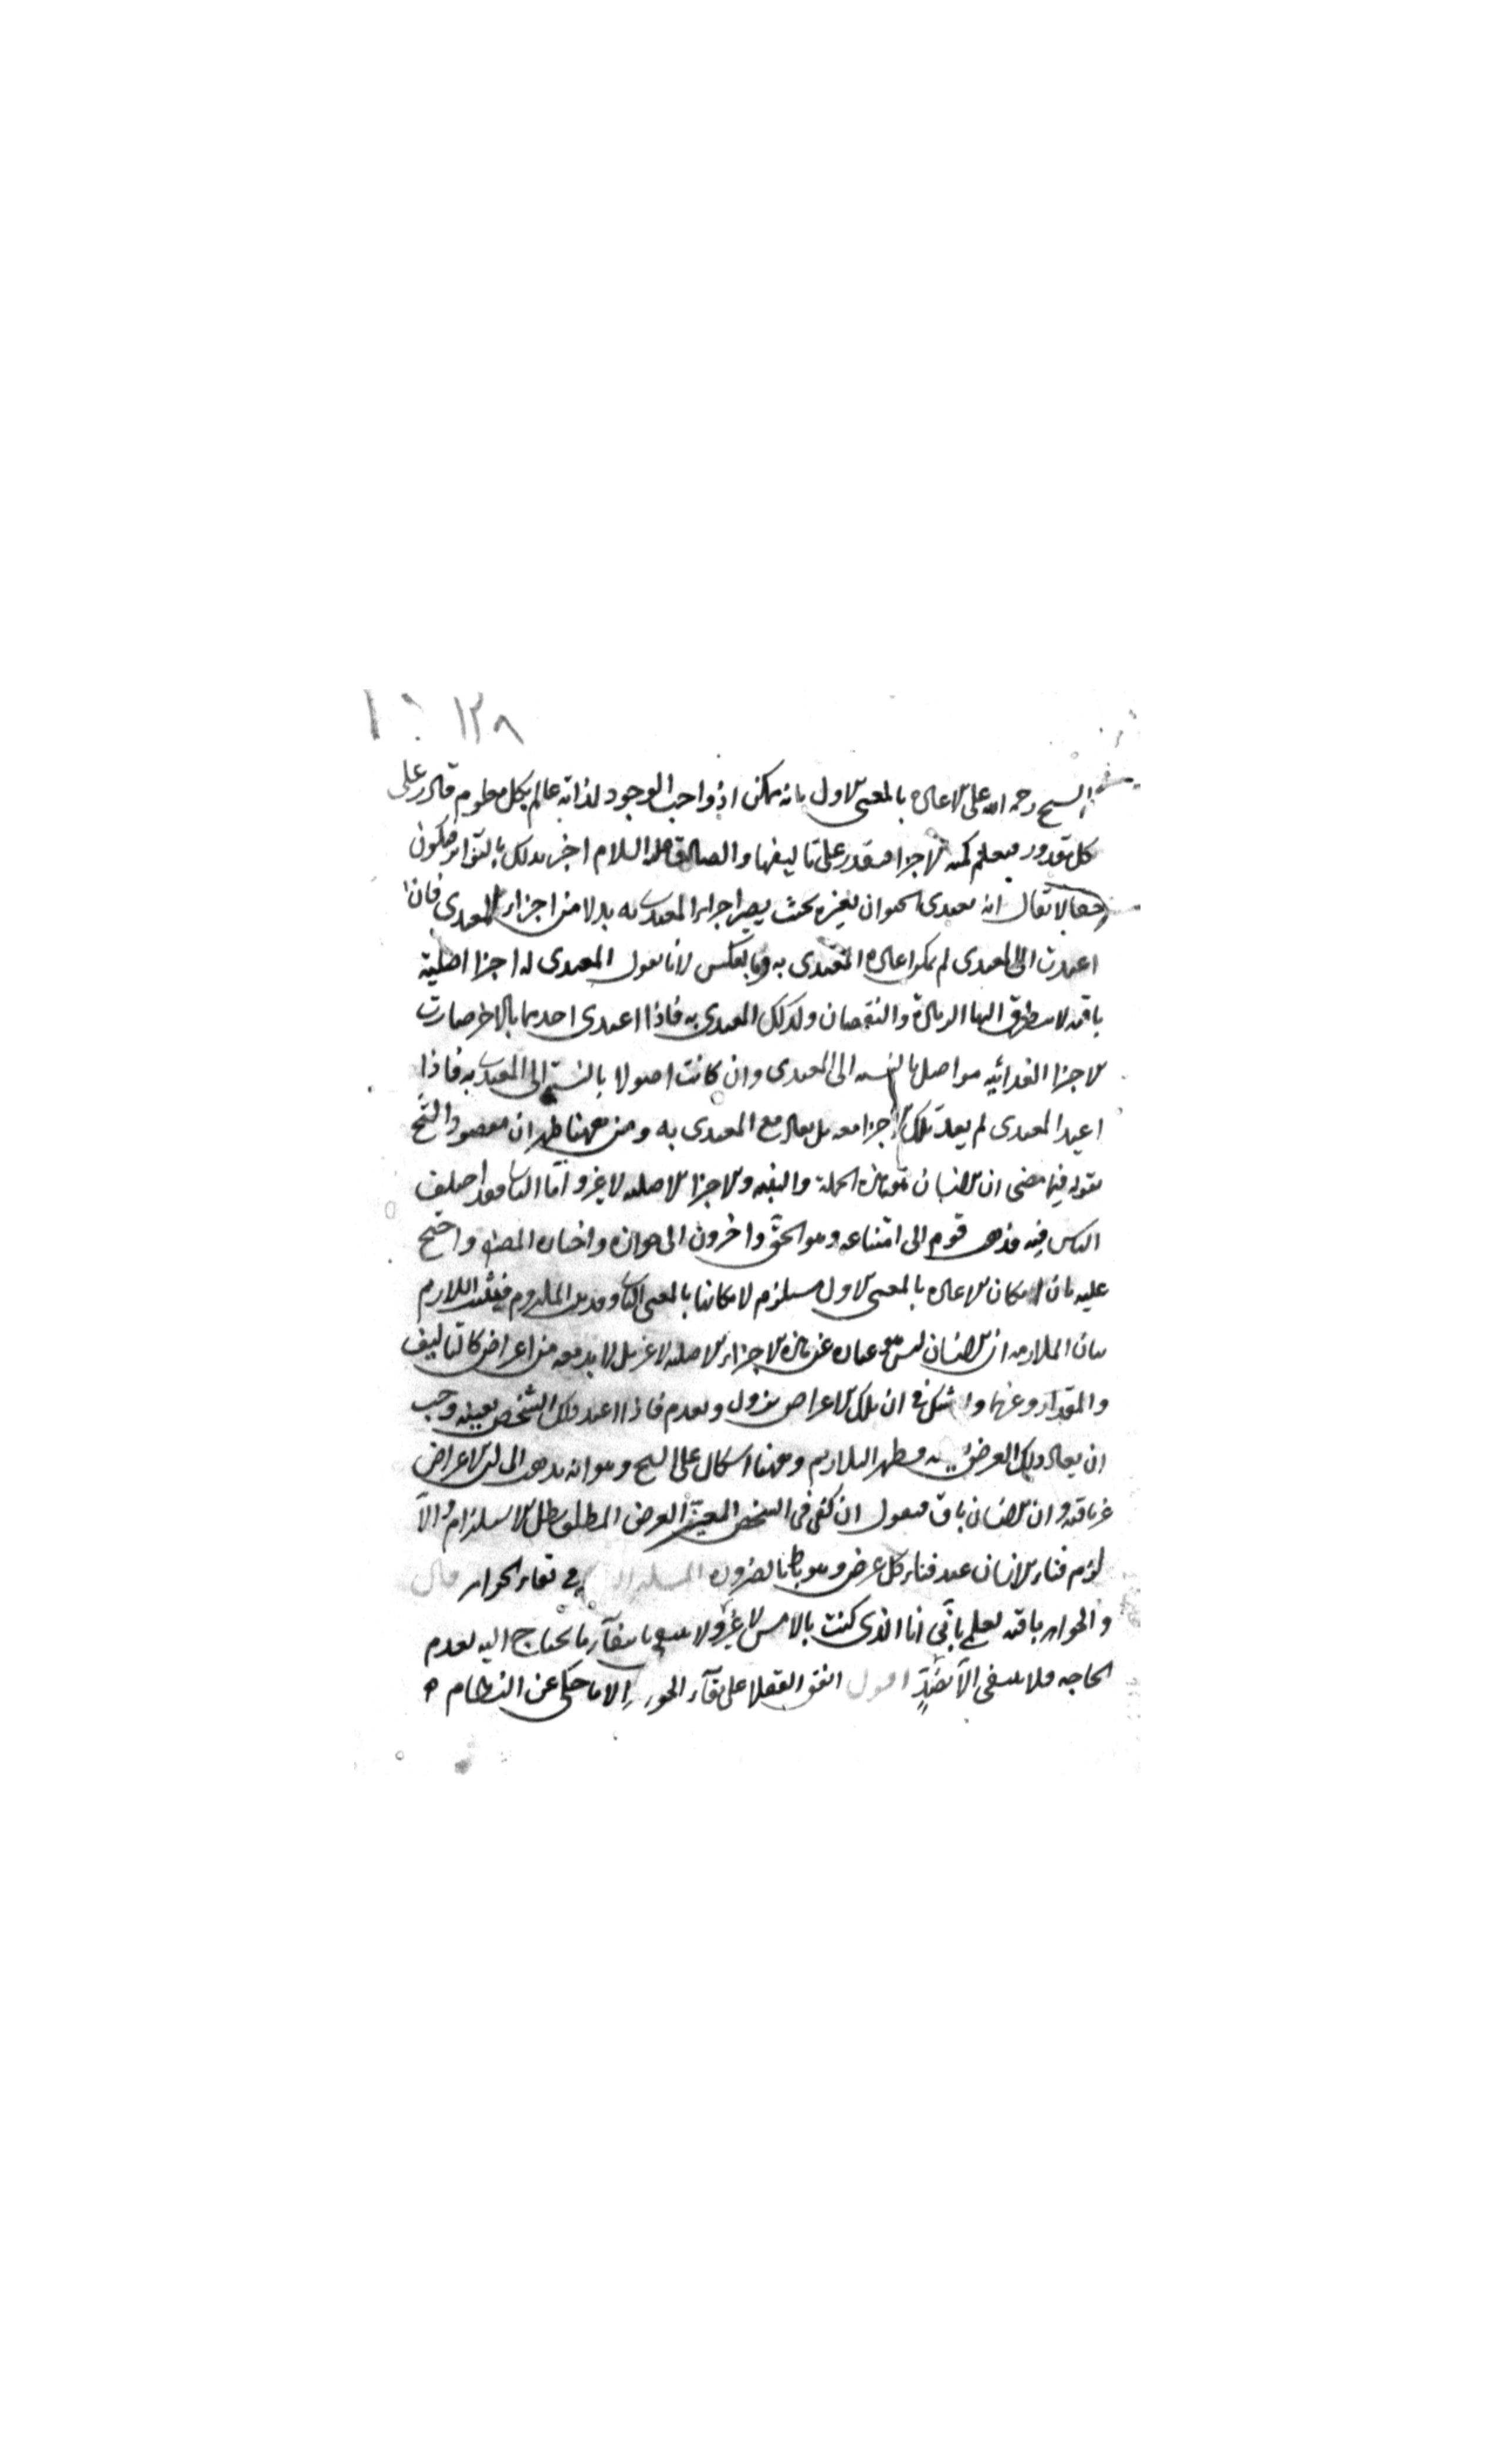 ١٢٨
الشيخ رحمه الله على الاعادة بالمعنى الاول بانه ممكن اذ واجب الوجود لذاته عالم بكل معلوم قادر على
كل مقدور فيعلم كمية الاجزا فيقدر على تاليفها والصادق عليه السلام اخبر بذلك بالتواتر فيكون
حقا لا يقال انه يغتدى الحيوان بغيره بحيث يصير اجزاء المغتدى به بدلا من اجزاء المغتدى فان
اعيدت الى المغتدى لم يمكن اعادة المغتدى به وبالعكس لانا نقول المغتدى له اجزا اصلية
باقية لا يتطرق اليها الزيادة والنقصان وكذلك المغتدى به فاذا اغتدى احدهما بالاخر صارت
الاجزا الغدائيه فواصل بالنسبه الى المغتدى وان كانت اصولا بالنسبة الى المغتدى به فاذا
اعيد المغتدى لم يعد تلك الاجزا معه بل يعاد مع المغتدى به ومن ههنا ظهر ان مقصود الشيخ
بقوله فيما مضى ان الانسان هو هذه الجملة والبنيه والاجزا الاصليه لا غير واما الثانى فقد اختلف
الناس فيه فذهب قوم الى امتناعه وهو الحق واخرون الى جوازه واختاره المصنف واحتج
عليه بان امكان الاعادة بالمعنى الاول مستلزم لامكانها بالمعنى الثانى وقد ثبت الملزوم فيثبت اللازم
بيان الملازمه ان الانسان ليس هو عبارة عن هذه الاجزاء الاصليه لا غير بل لا بد معه من اعراض كالتاليف
والمقدار وغيرهما ولا شك فى ان تلك الاعراض تزول وتعدم فاذا اعيد ذلك الشخص بعينه وجب
ان يعاد ذلك العرض بعينه فظهر التلازم وههنا اشكال على الشيخ وهو انه يذهب الى ان الاعراض
غير باقيه وان الانسان باق فنقول ان كفى فى الشخص المعين العرض المطلق بطل الاستلزام والا
لزم فناء الانسان عند فناء كل عرض وهو باطل بالضرورة المسله فى بقاء الجواهر قال
والجواهر باقيه لعلمى بانى انا الذى كنت بالامس لا غير ولا ينتفى بانتفاء ما يحتاج اليه لعدم
الحاجه فلا ينتفى الا بضد اقول اتفق العقلا على بقاء الجواهر الا ما حكى عن النظام